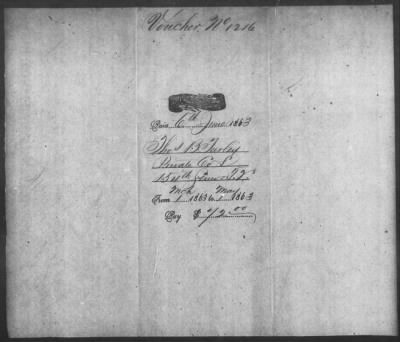 Voucher, No 1216
Paid 6th June 1863
Thos B Turley
Private Co L
154th Tenn
Mch May
From 1 1863 to 1 1863
Pay $ 00